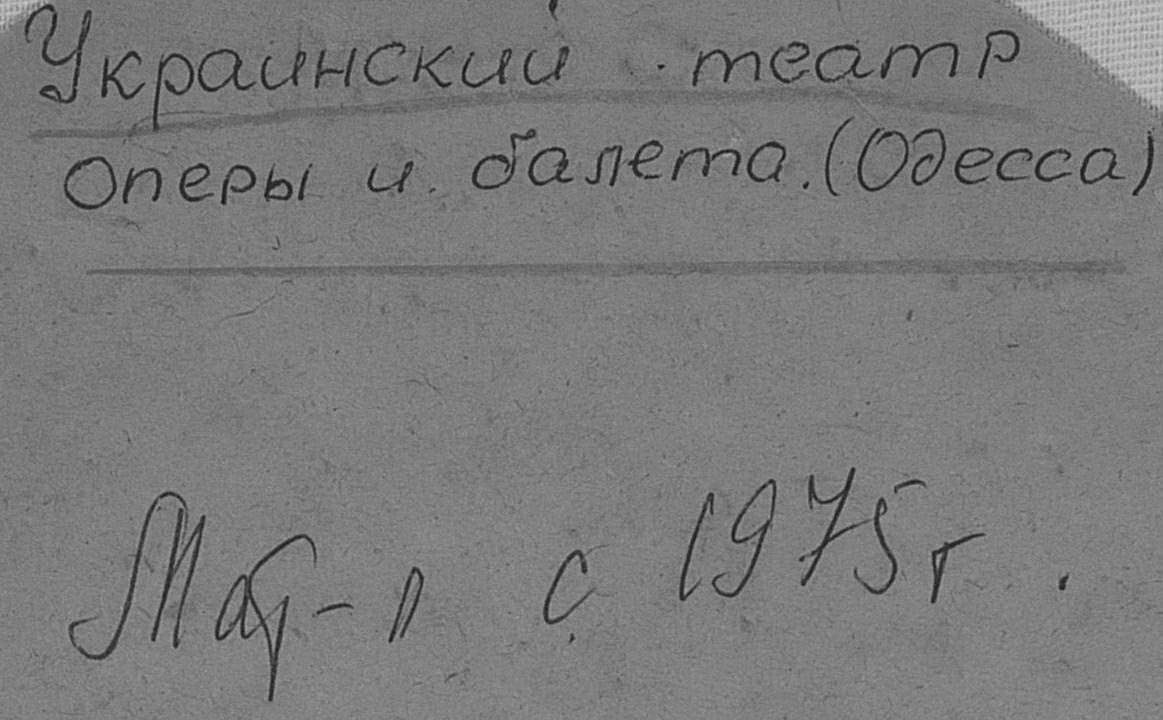 Украинский театр
Оперы и балета. (Одесса)
с 1975 г.